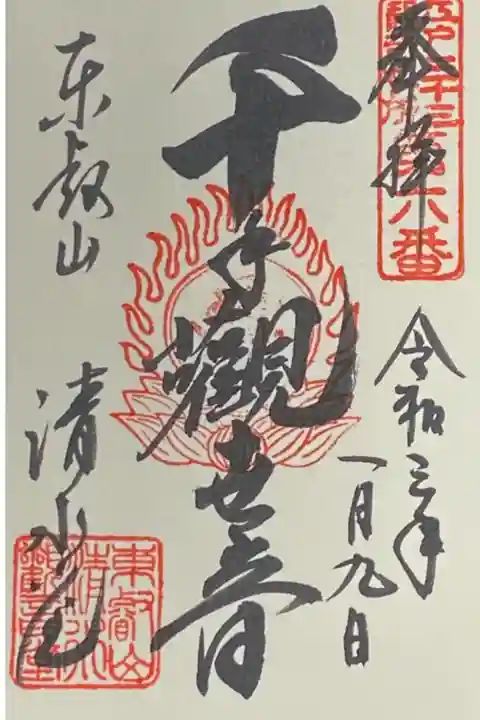 奉拝
令和三年
一月九日
千手観世音
東叡山
清水堂